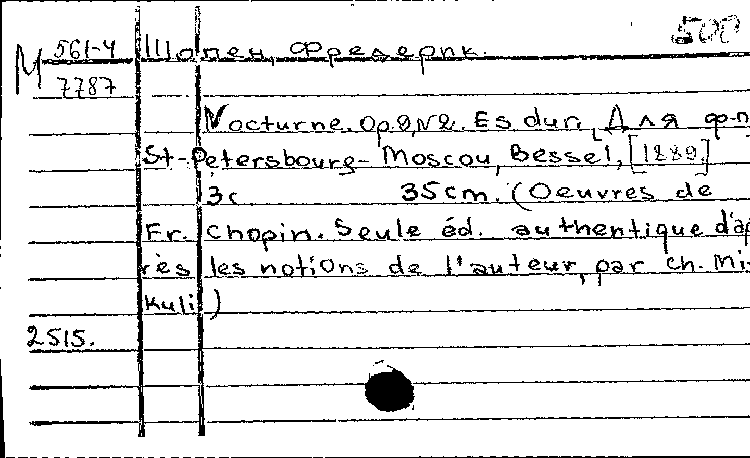 500
М 561-4 Шопен, Фредерик.
7787
Nocturne. Op.9, N2. Es dur. [Для ф-п
St-Petersbourg-Moscou, Bessel, [1880.]
3c 35cm. (Oeuvres de
Fr. Chopin. Seule éd. authentique d'ap
rès les notions de l'auteur, par Ch. Mi-
kuli)
2515.